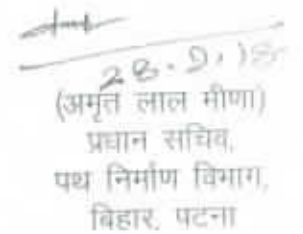 28.9.18
(अमृत लाल मीणा)
प्रधान सचिव,
पथ निर्माण विभाग,
बिहार, पटना